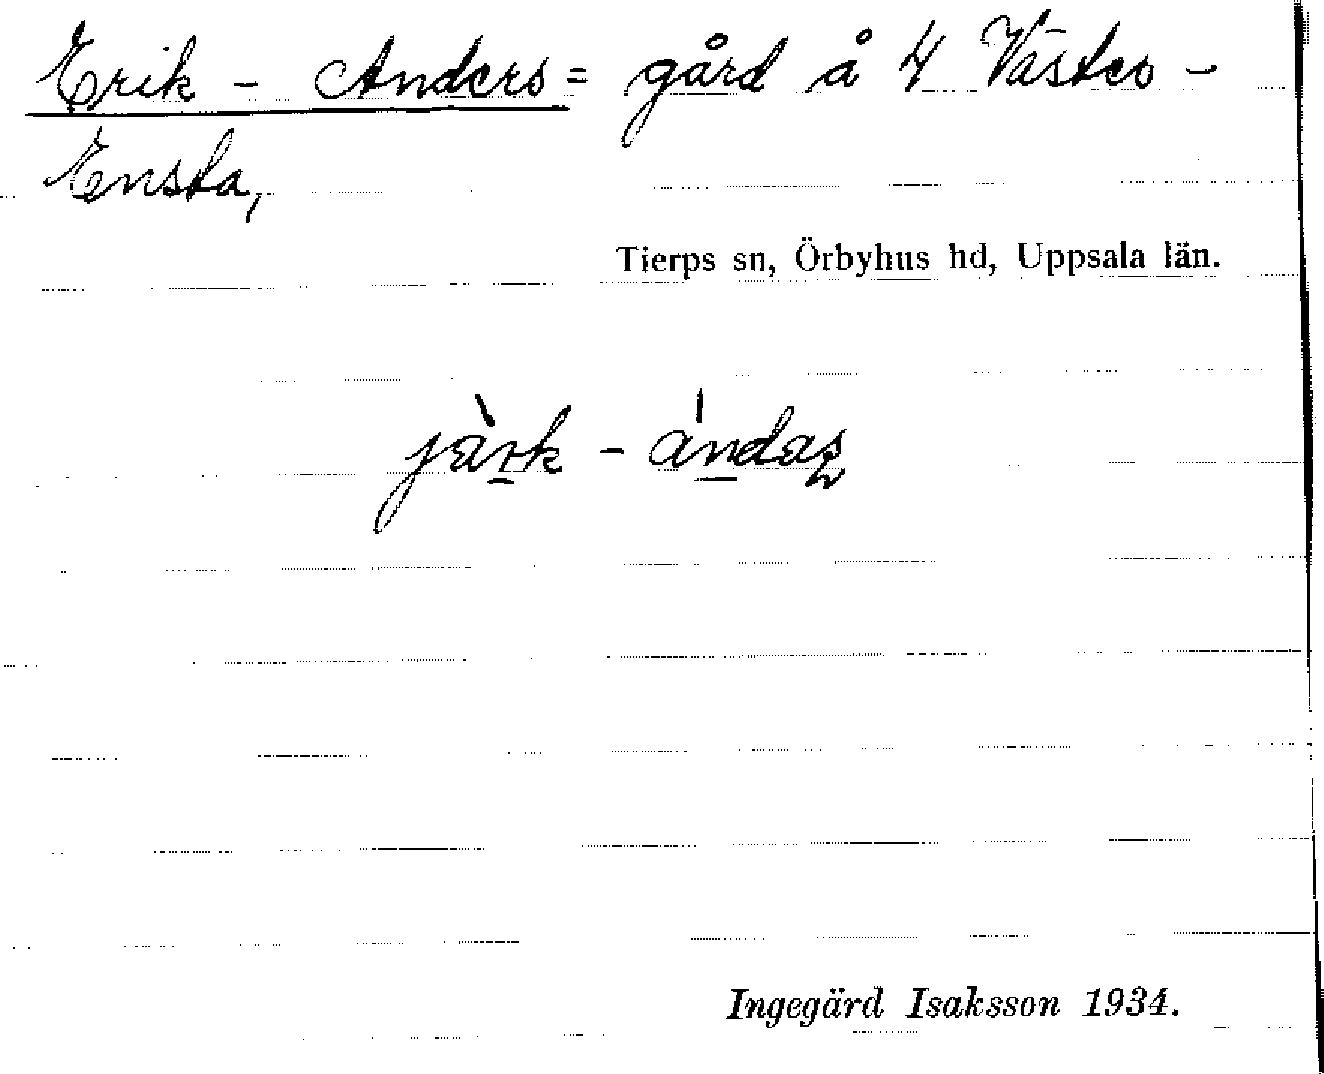 Erik - Anders = gård å 4 Väster -
Ensta,
Tierps sn, Örbyhus hd, Uppsala län.
jàrk - ándaʂ
Ingegärd Isaksson 1934.